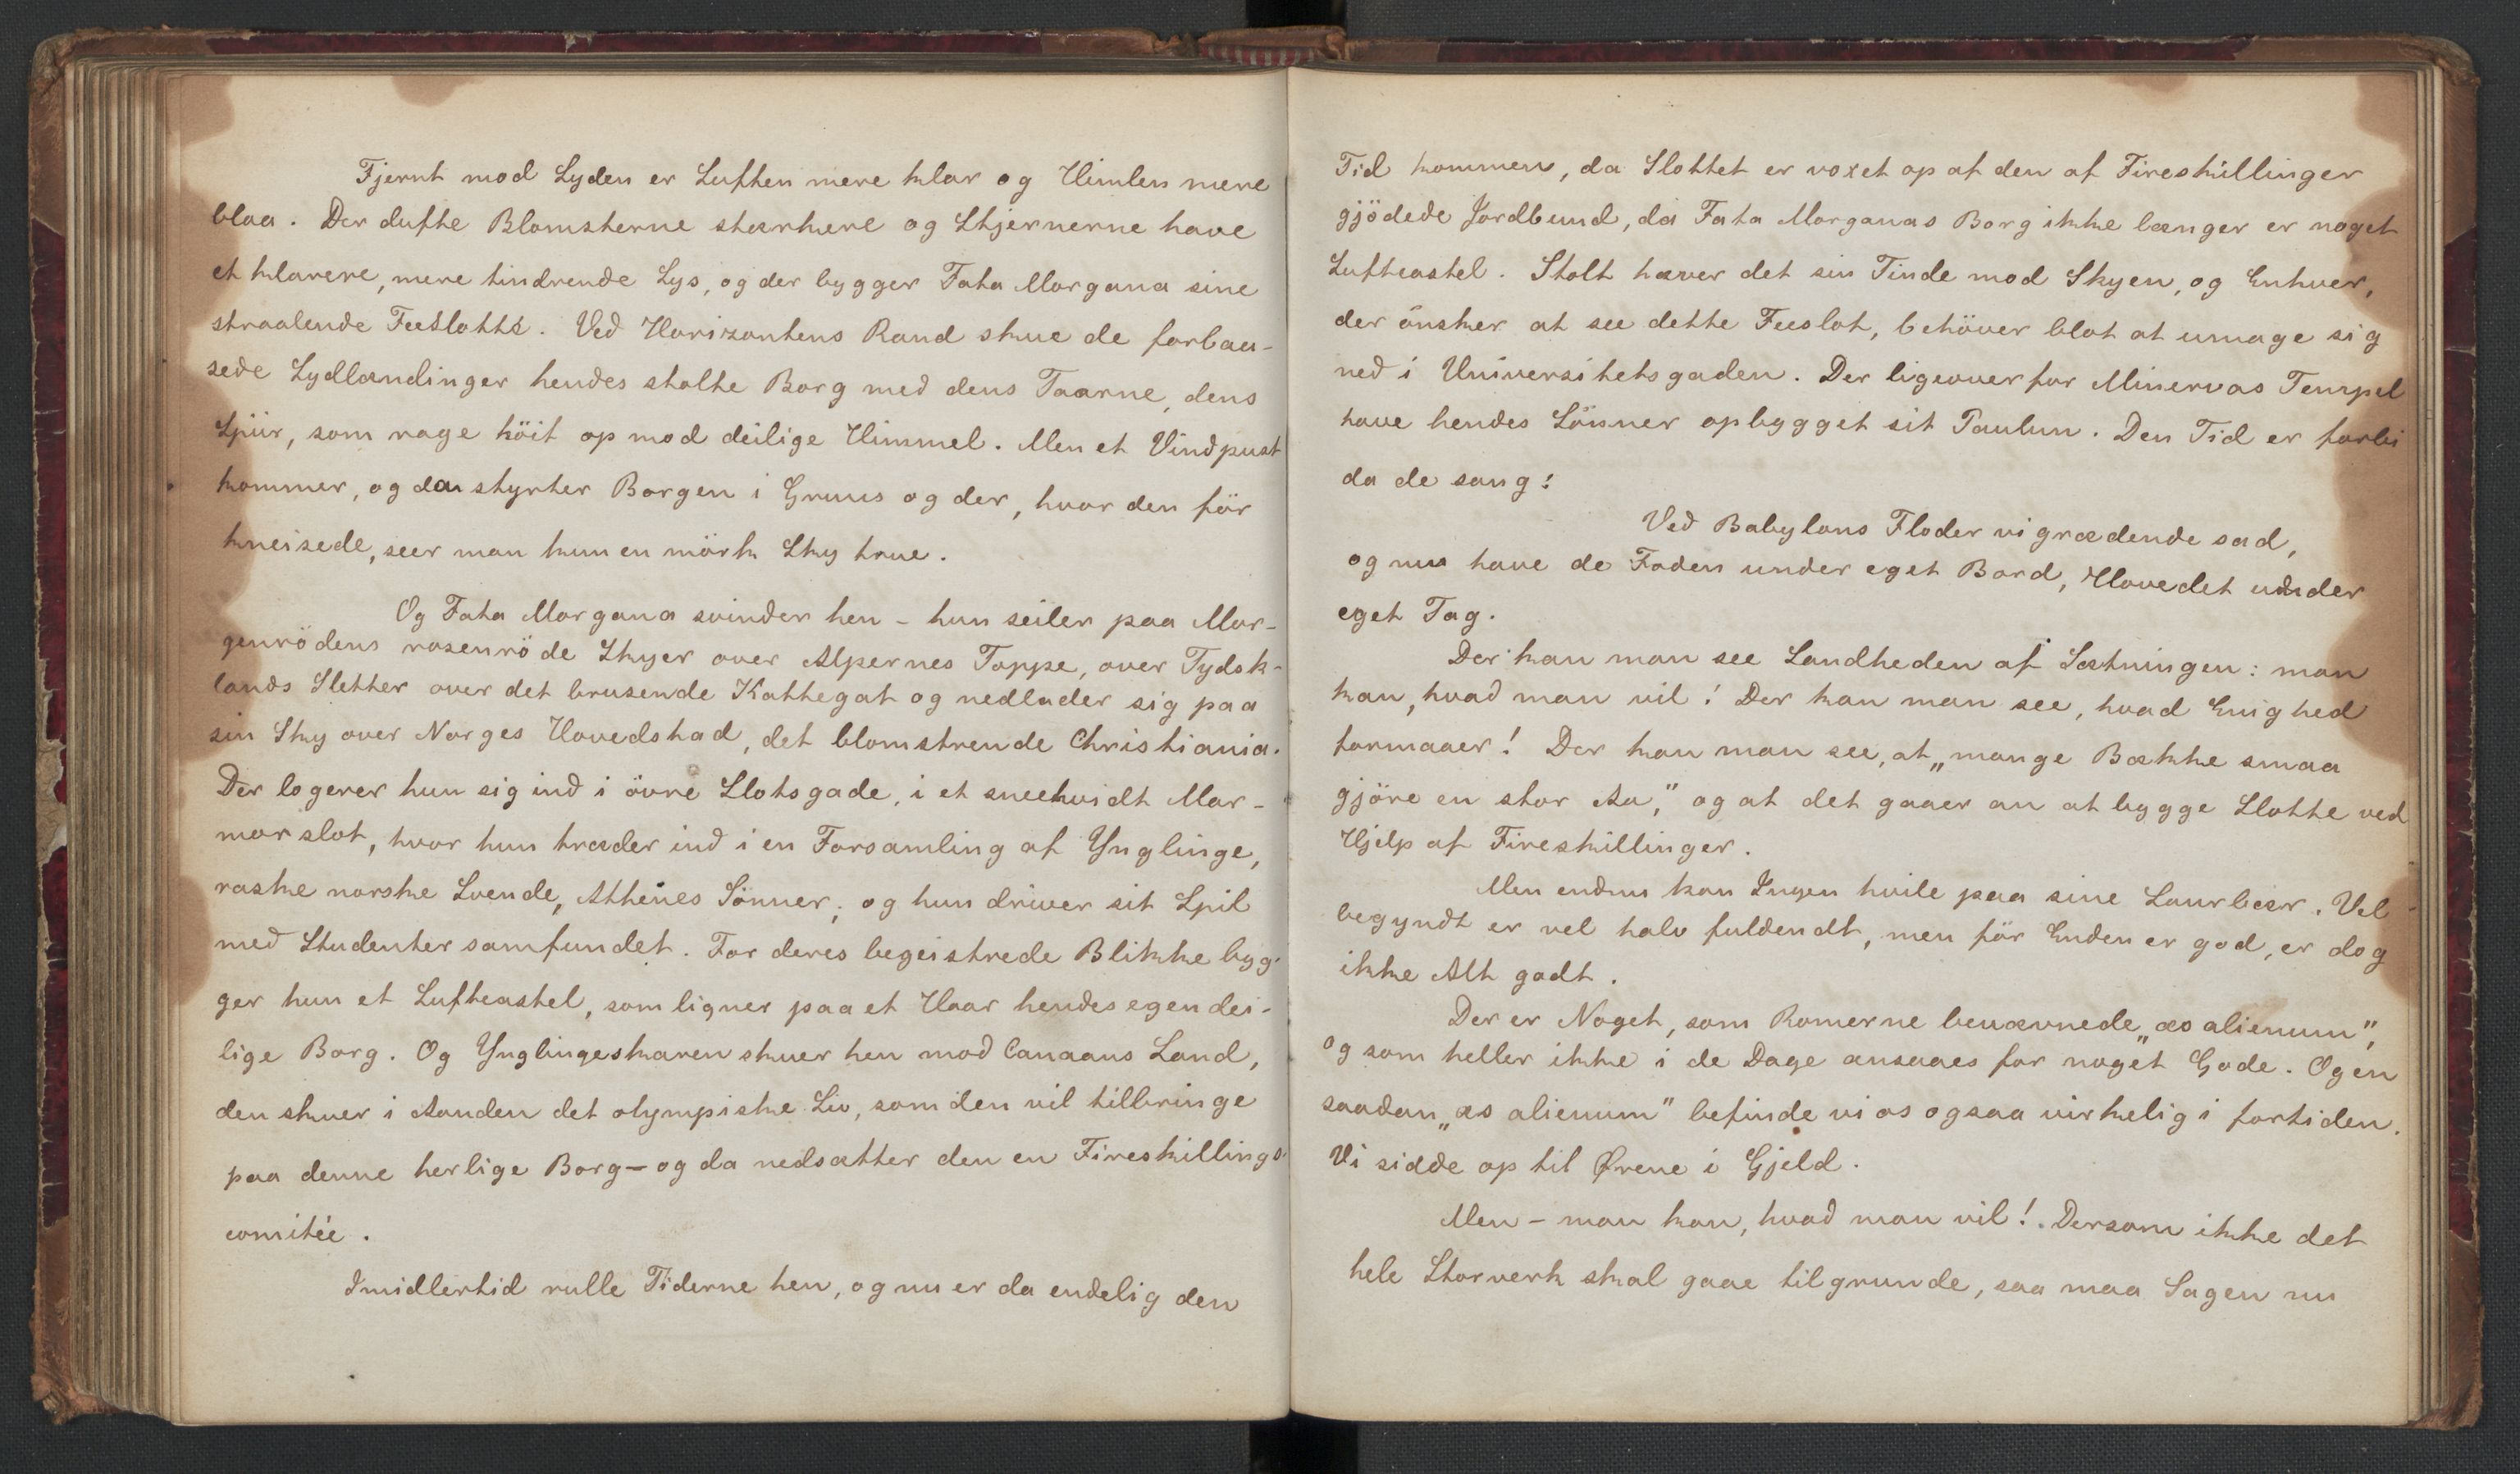 Fjernt mod Syden er Luften mere klar og Himlen mere
blaa. Der dufte Blomsterne stærkere og Stjernerne have
et klarere, mere tindrende Lys, og der bygger Fata Morgana sine
straalende Feeslotte. Ved Horizontens Rand skue de forbau-
sede Sydlændinger hendes stolte Borg med dens Taarne, dens
Spiir, som rage höit op mod deilige Himmel. Men et Vindpust
kommer, og da styrter Borgen i Gruus og der, hvor den för
kneisede, seer man kun en mörk Sky true.
Og Fata Morgana svinder hen – hun seiler paa Mor-
genrödens rosenröde Skyer over Alpernes Toppe, over Tydsk-
lands Sletter over det brusende Kattegat og nedlader sig paa
sin Sky over Norges Hovedstad, det blomstrende Christiania.
Der logerer hun sig ind i övre Slotsgade, i et sneehvidt Mar-
morslot, hvor hun træder ind i en Forsamling af Ynglinge,
raske norske Svende, Athenes Sönner; og hun driver sit Spil
med Studentersamfundet. For deres begeistrede Blikke byg-
ger hun et Luftcastel, som ligner paa et Haar hendes egen dei-
lige Borg. Og Ynglingeskaren skuer hen mod Canaans Land,
den skuer i Aanden det olympiske Liv, som den vil tilbringe
paa denne herlige Borg – og da nedsætter den en Fireskillings-
comitée.
Imidlertid rulle Tiderne hen, og nu er da endelig den
Tid kommen, da Slottet er voxet op af den af Fireskillinger
gjödede Jordbund, da Fata Morganas Borg ikke længer er noget
Luftcastel. Stolt hæver det sin Tinde mod Skyen, og Enhver,
der önsker at see dette Feeslot, behöver blot at umage sig
ned i Universitetsgaden. Der ligeoverfor Minervas Tempel
have hendes Sönner opbygget sit Paulun. Den Tid er forbi
da de sang:
Ved Babylons Floder vi grædende sad,
og nu have de Foden under eget Bord, Hovedet under
eget Tag.
Der kan man see Sandheden af Sætningen: man
kan, hvad man vil! Der kan man see, hvad Enighed
formaaer! Der kan man see, at „mange Bække smaa
gjöre en stor Aa,” og at det gaaer an at bygge Slotte ved
Hjelp af Fireskillinger.
Men endnu kan Ingen hvile paa sine Laurbær. Vel
begyndt er vel halv fuldendt, men för Enden er god, er dog
ikke Alt godt.
Der er Noget, som Romerne benævnede „æs alienum”,
og som heller ikke i de Dage ansaaes for noget Gode. Og en
saadan „æs alienum” befinde vi os ogsaa virkelig i fortiden.
Vi sidde op til Ørene i Gjeld.
Men – man kan, hvad man vil! Dersom ikke det
hele Storverk skal gaae tilgrunde, saa maa Sagen nu